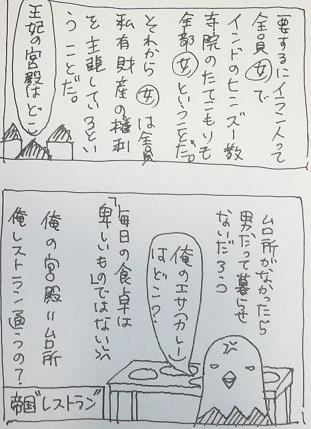 要するにイラン人って
全員女で
インドのヒンズー教
寺院のたてこもりも
全部女ということだ。
それから女は全員
私有財産の権利
を主張しているとい
うことだ。
王妃の宮殿はどこ
台所がなかったら
男だって暮らせ
ないだろう
俺のエサ(カレー)
はどこ?
「毎日の食卓は
卑しいもの」ではない
俺の宮殿=台所
俺レストラン通うの?
帝国"レストラン"